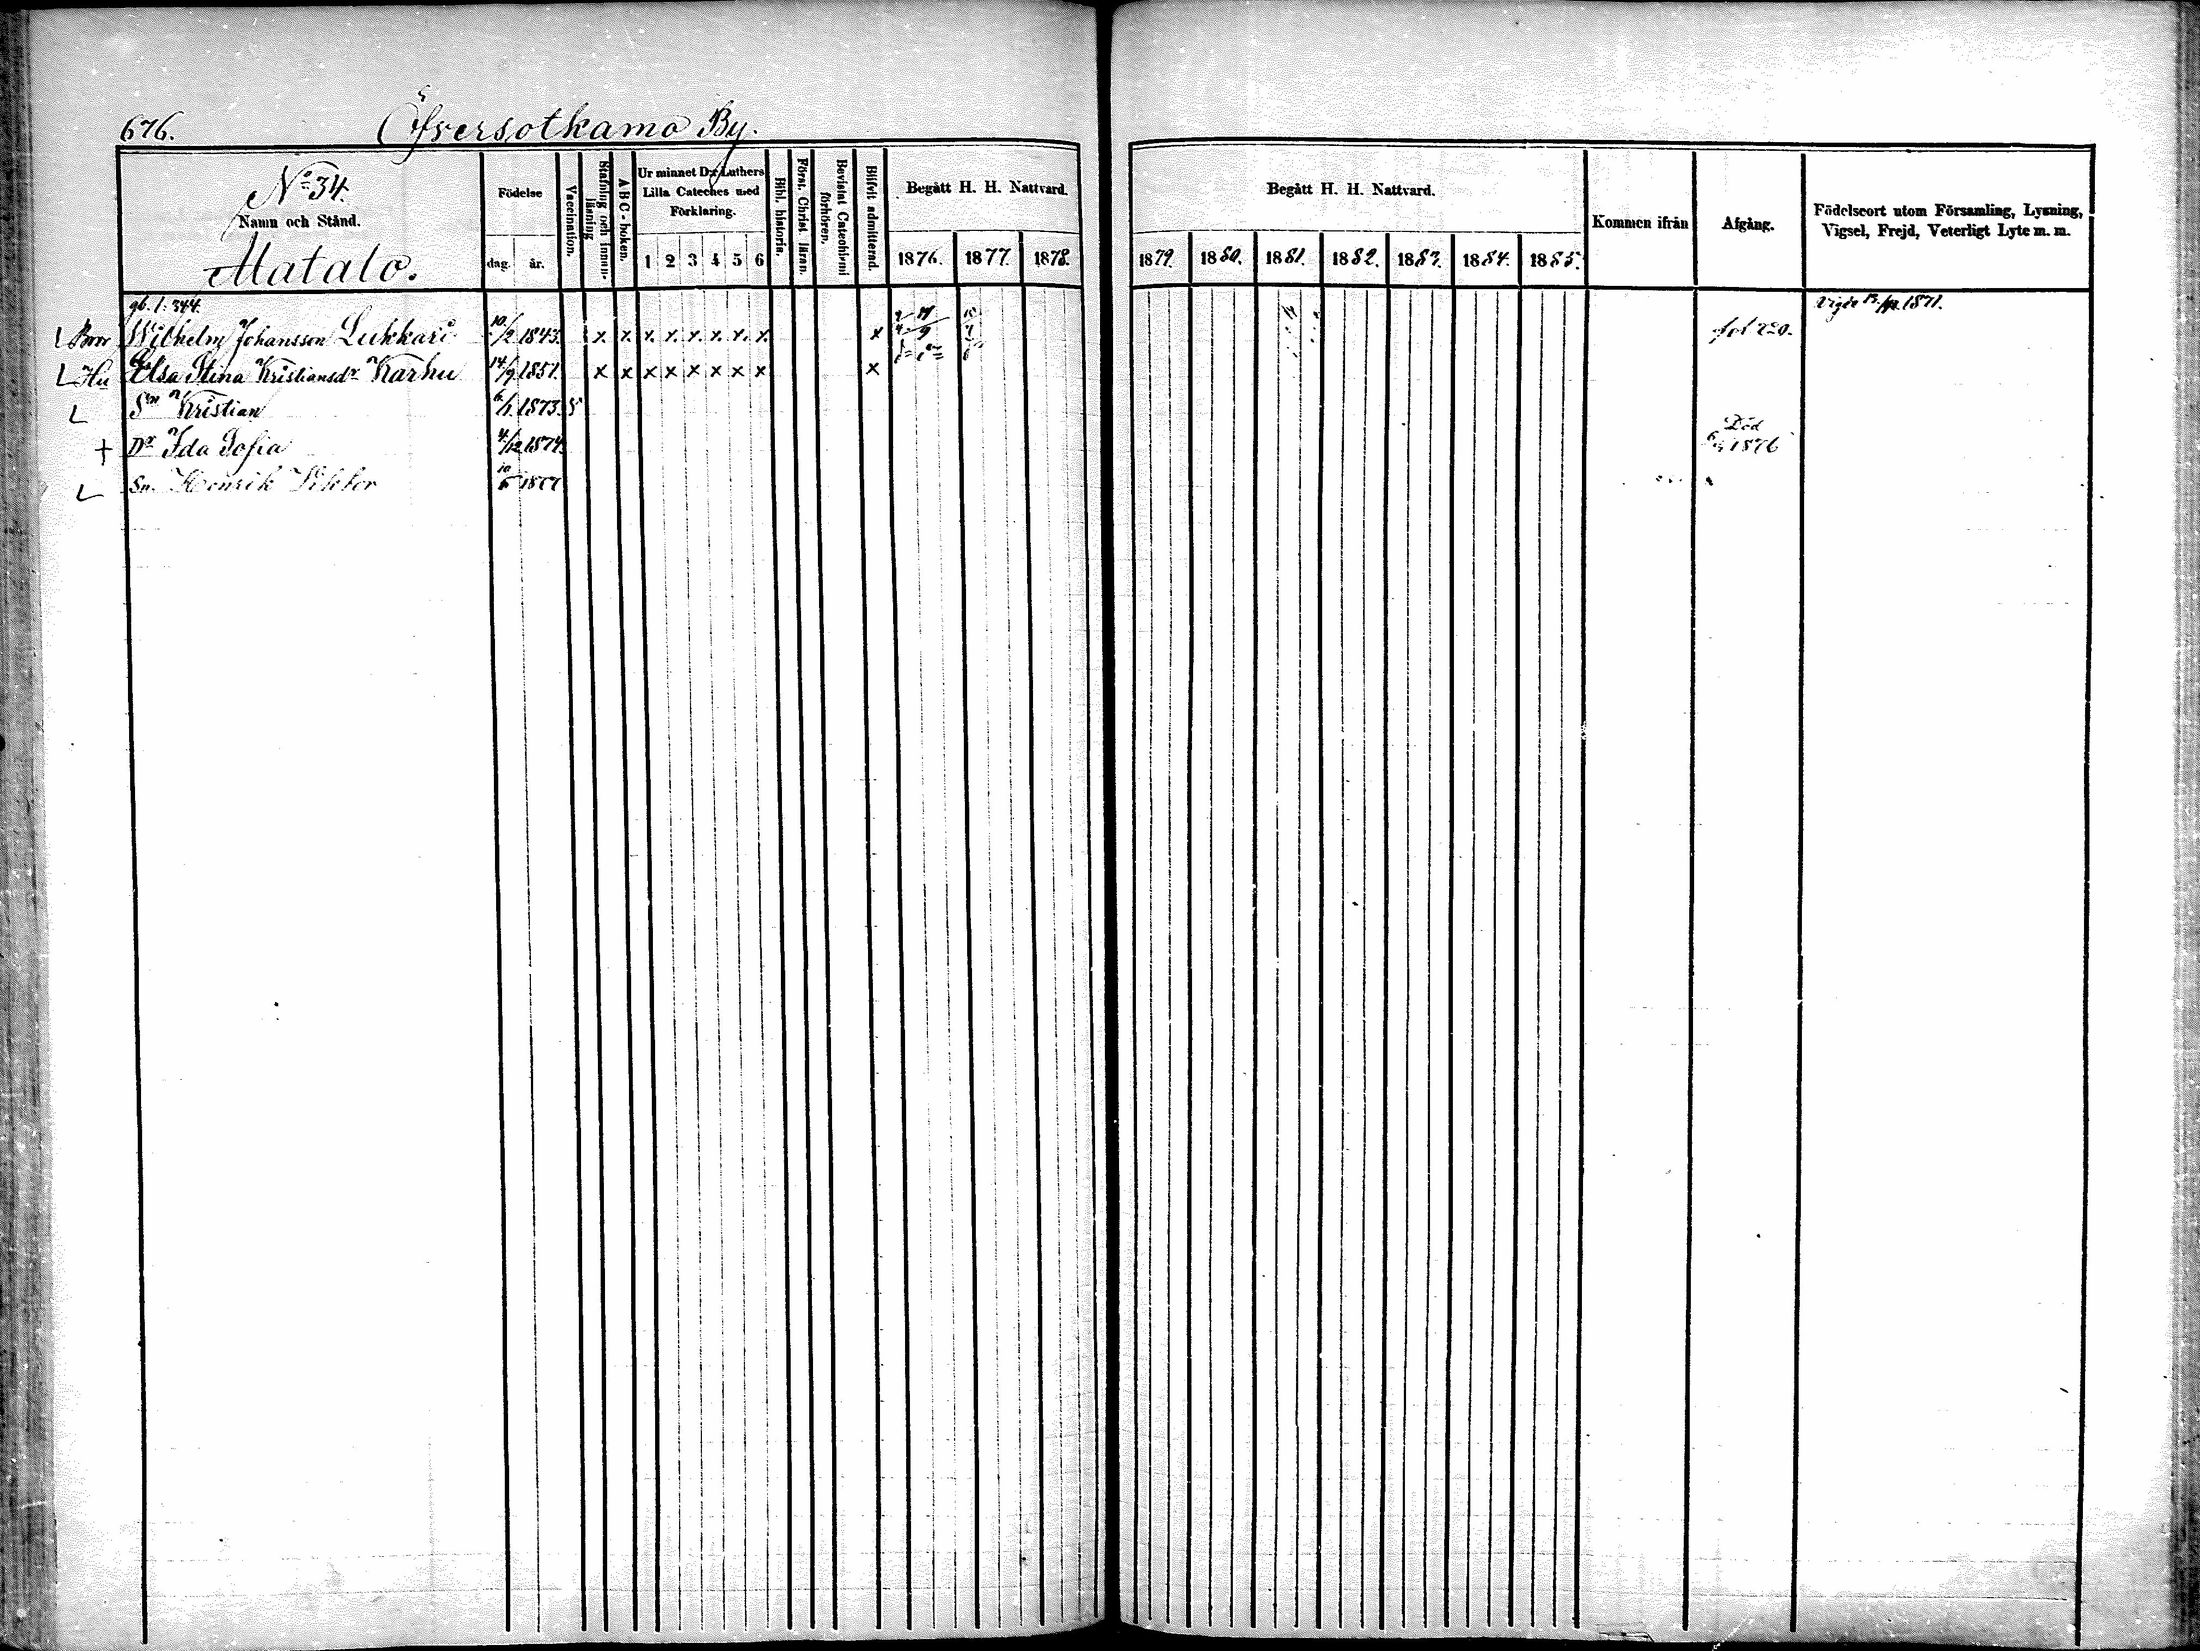 676. Öfversotkamo By.
No 34.
Namn och Stånd.
Matalo.
Födelse
dag. år.
Vaccination.
Stafning och innan-läsning
ABC-boken.
Ur minnet D:r Luthers
Lilla Cateches med
Förklaring.
1 2 3 4 5 6
Bibl. historia.
Först. Christ. läran.
Bevistat Catechismi förhören.
Blifvit admitterad.
Begått H. H. Nattvard.
1876. 1877. 1878.
Begått H. H. Nattvard.
1879. 1880. 1881. 1882. 1883. 1884. 1885.
Kommen ifrån
Afgång.
Födelseort utom Församling, Lysning,
Vigsel, Frejd, Veterligt Lyte m. m.
gb. 1: 344. 1871.
Wilhelm Johansson Lukkari 10/2 1843. x x x x x x x x x fol 720.
Hu Elsa Stina Kristiansdr Karhu 14/9 1851. x x x x x x x x x
Sn Kristian 6/1 1873
+ Dr Ida Sofia 4/12 1874. Död 1876
Sn. Henrik Viktor